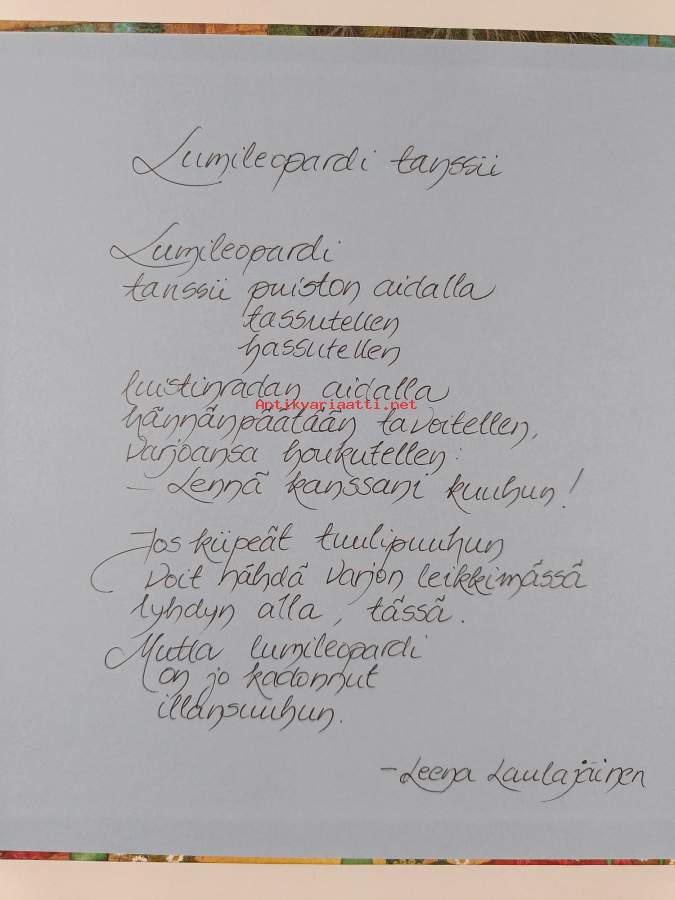 Lumileopardi tanssii
Lumileopardi
tanssii puiston aidalla
tassutellen
hassutellen
luistinradan aidalla
Antikvariaatti.net
hännänpäätään tavoitellen,
varjoansa houkutellen:
– Lennä kanssani kuuhun!
Jos kiipeät tuulipuuhun
voit nähdä varjon leikkimässä
lyhdyn alla, tässä.
Mutta lumileopardi
on jo kadonnut
illansuuhun.
– Leena Laulajainen